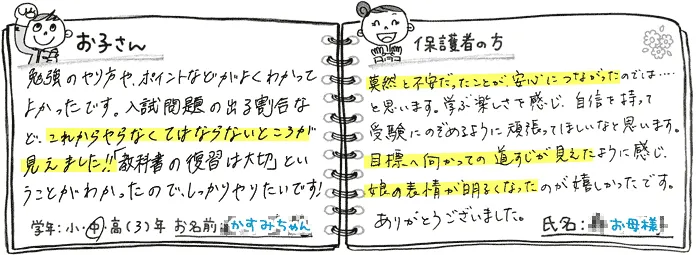 お子さん
勉強のやり方や、ポイントなどがよくわかって
よかったです。入試問題の出る割合な
ど、これからやらなくてはならないところが
見えました!!「教科書の復習は大切」とい
うことがわかったので、しっかりやりたいです!
学年:小・中・高(3)年 お名前 かすみちゃん
保護者の方
莫然と不安だったことが、安心につながったのでは‥‥
と思います。学ぶ楽しさを感じ、自信を持って
受験にのぞめるように頑張ってほしいなと思います。
目標へ向かっての道すじが見えたように感じ、
娘の表情が明るくなったのが嬉しかったです。
ありがとうございました。
氏名: お母様